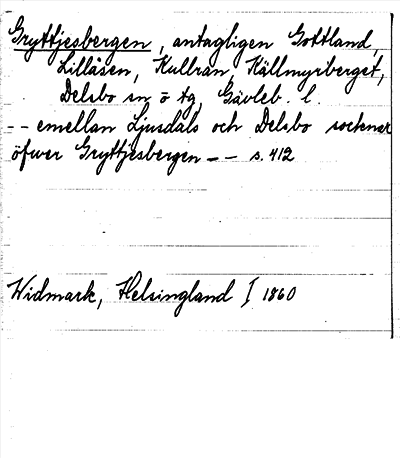 Gryttjesbergen, antagligen Gottland,
Lillåsen, Kullran, Källmyrberget,
Delsbo sn ö tg, Gävleb. l.
-- emellan Ljusdals och Delsbo socknar
öfwer Gryttjesbergen -- s. 412
Widmark, Helsingland I 1860